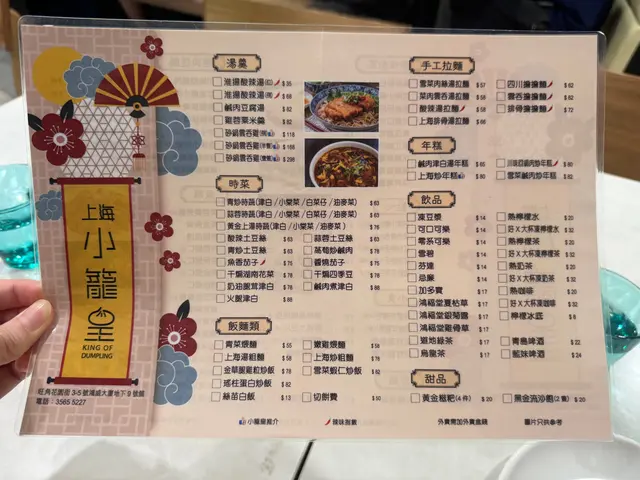 上海
小籠皇
KING OF
DUMPLING
旺角花園街3-5號鴻威大廈地下9號舖
電話：3565 5227
湯羹
淮揚酸辣湯(細) $35
淮揚酸辣湯 $68
鹹肉豆腐湯 $82
蟹蓉粟米羹 $82
砂鍋雲吞雞 $118
砂鍋雲吞雞 $168
砂鍋雲吞雞 $298
時菜
青炒時蔬(津白/小棠菜/白菜仔/油麥菜) $63
蒜蓉時蔬(津白/小棠菜/白菜仔/油麥菜) $63
黃金上湯時蔬(津白/小棠菜/油麥菜) $76
酸辣土豆絲 $63
蒜蓉土豆絲 $63
青炒土豆絲 $63
蒿菊炒鹹肉 $75
魚香茄子 $75
醬燒茄子 $75
干煸湖南花菜 $78
干煸四季豆 $78
奶油焗津白 $78
鹹肉煮津白 $88
火腿津白 $88
飯麵類
青菜煨麵 $55
嫩雞煨麵 $58
上海湯粗麵 $58
上海炒粗麵 $76
金華腿雞粒炒飯 $78
雪菜蝦仁炒飯 $82
瑤柱蛋白炒飯 $82
絲苗白飯 $12
切餅費 $50
手工拉麵
雪菜肉絲湯麵 $57
四川擔擔麵 $62
菜肉雲吞湯麵 $59
雲吞擔擔麵 $68
酸辣湯拉麵 $58
排骨擔擔麵 $72
上海排骨湯拉麵 $66
年糕
鹹肉津白湯年糕 $65
川味回鍋肉炒年糕 $80
上海炒年糕 $80
雪菜鹹肉炒年糕 $82
飲品
凍豆漿 $14
熱檸檬水 $20
可口可樂 $14
好X大杯凍檸水 $32
零系可樂 $14
熱檸檬茶 $20
雪碧 $14
好X大杯凍檸檬茶 $32
芬達 $14
熱奶茶 $20
忌廉 $14
好X大杯凍奶茶 $32
加多寶 $17
熱咖啡 $20
鴻福堂夏枯草 $17
好X大杯凍咖啡 $32
鴻福堂銀菊露 $17
檸檬冰底 $8
鴻福堂雞骨草 $17
道地綠茶 $17
青島啤酒 $22
烏龍茶 $17
藍妹啤酒 $24
甜品
黃金糍粑(4件) $20
黑金流沙包(2隻) $20
小籠皇推介
辣味指數
外賣需加外賣盒錢
圖片只供參考